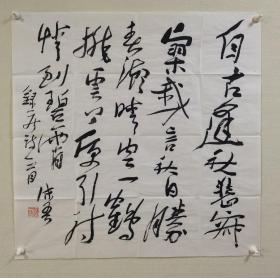 自古逢秋悲寂
寥我言秋日勝
春潮晴空一鶴
排雲上便引詩
情到碧霄